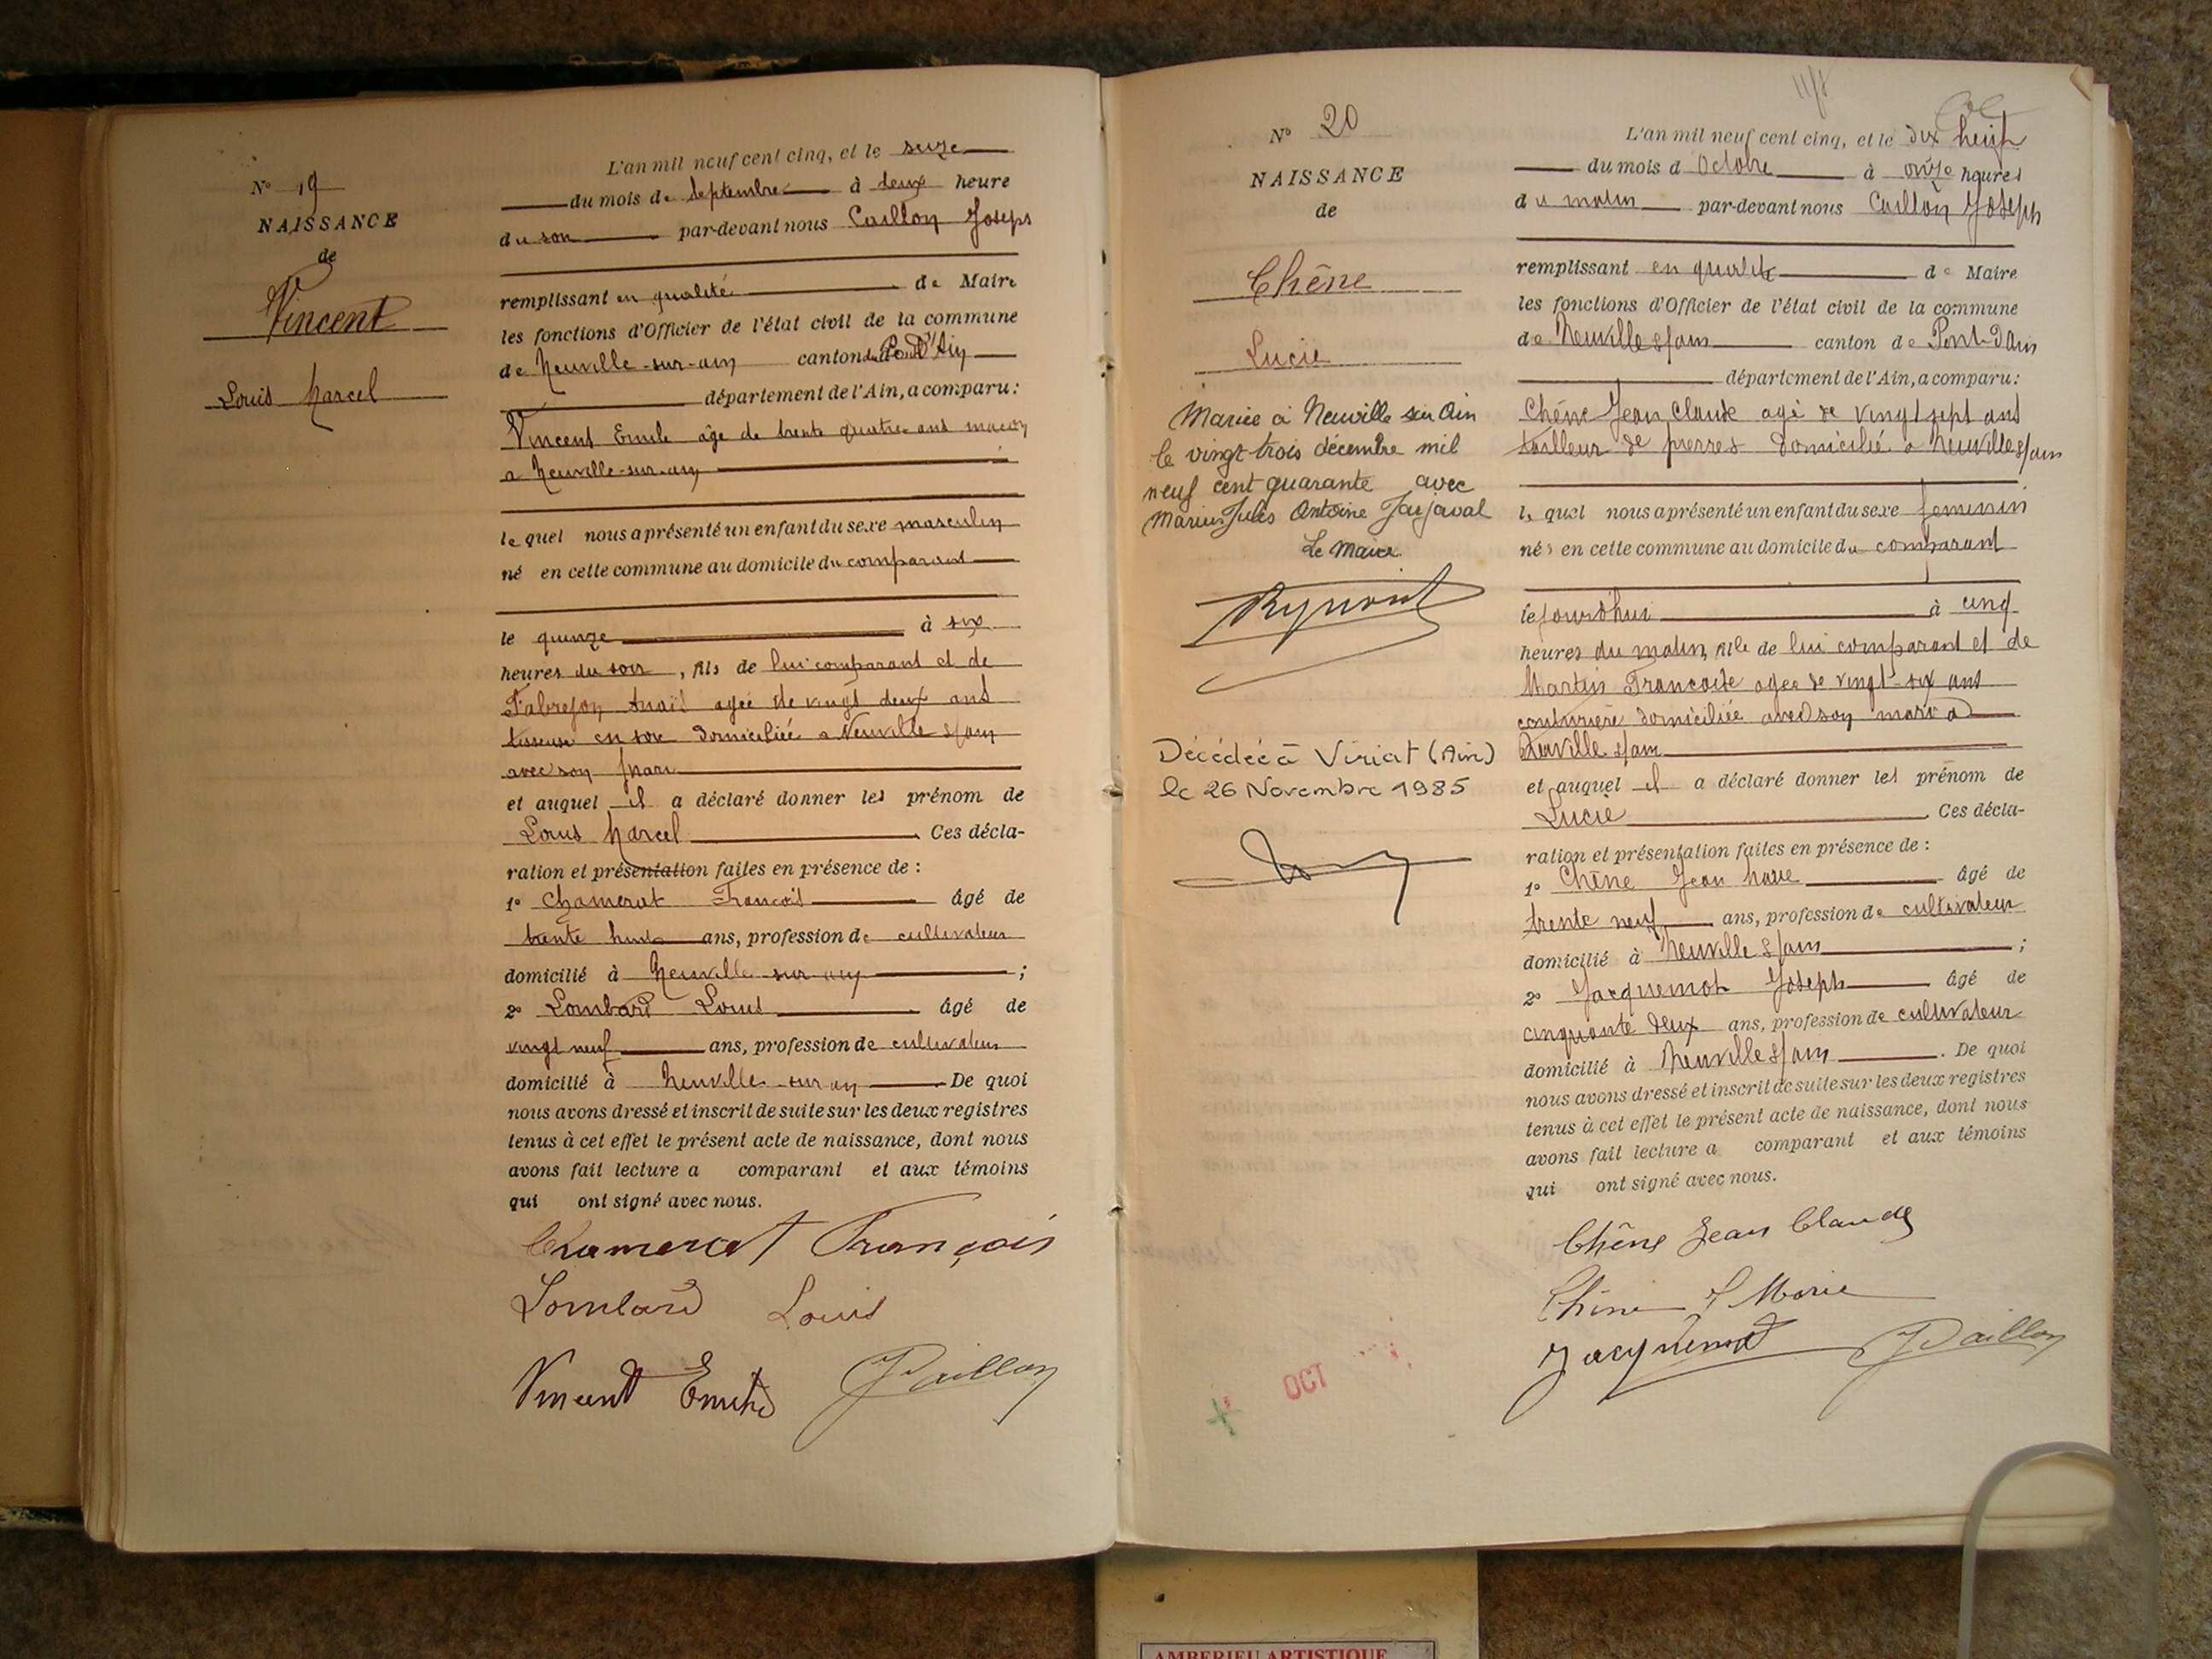 N° 19
NAISSANCE
de
Vincent
Louis Marcel
L'an mil neuf cent cinq, et le seize
du mois de Septembre à deux heure
du soir par-devant nous Caillon Joseph
remplissant en qualité de Maire
les fonctions d'Officier de l'état civil de la commune
de Neuville-sur-ain canton de Pont d'Ain
département de l'Ain, a comparu:
Vincent Emile âge de trente quatre ans maçon
a Neuville-sur-ain
le quel nous a présenté un enfant du sexe masculin
né en cette commune au domicile du comparant
le quinze à six
heures du soir, fils de lui comparant et de
agée de vingt deux ans
tisseuse en soie domiciliée a Neuville s/ain
avec son mari
et auquel il a déclaré donner les prénom de
Louis Marcel. Ces décla-
ration et présentation faites en présence de:
1° Chamerat François âgé de
trente huit ans, profession de cultivateur
domicilié à Neuville sur ain;
2° Lombard Louis âgé de
vingt neuf ans, profession de cultivateur
domicilié à Neuville sur ain De quoi
nous avons dressé et inscrit de suite sur les deux registres
tenus à cet effet le présent acte de naissance, dont nous
avons fait lecture a comparant et aux témoins
qui ont signé avec nous.
Chamerat François
Lombard Louis
Vincent Emile JCaillon
N° 20
NAISSANCE
de
Chêne
Lucie
Mariée à Neuville sur Ain
le vingt-trois décembre mil
neuf cent quarante avec
Marius Jules Antoine
Le Maire
Décédée à Viriat (Ain)
le 26 Novembre 1985
OCT
L'an mil neuf cent cinq, et le dix huit
du mois d Octobre à onze heures
du matin par-devant nous Caillon Joseph
remplissant en qualité de Maire
les fonctions d'Officier de l'état civil de la commune
de Neuville s/ain canton de Pont-d'ain
département de l'Ain, a comparu:
Chêne Jean Claude agé de vingt sept ans
tailleur de pierres domicilié a Neuville s/ain
le quel nous a présenté un enfant du sexe feminin
née en cette commune au domicile du comparant
le jourd'hui à cinq
heures du matin, fille de lui comparant et de
Martin Francoise agee de vingt-six ans
couturière domiciliée avec son mari a
Neuville s/ain
et auquel il a déclaré donner les prénom de
Lucie. Ces décla-
ration et présentation faites en présence de:
1° Chêne Jean Marie âgé de
trente neuf ans, profession de cultivateur
domicilié à Neuville s/ain;
2° Jacquemot Joseph âgé de
cinquante deux ans, profession de cultivateur
domicilié à Neuville s/ain. De quoi
nous avons dressé et inscrit de suite sur les deux registres
tenus à cet effet le présent acte de naissance, dont nous
avons fait lecture a comparant et aux témoins
qui ont signé avec nous.
Chêne Jean Claude
Chêne J Marie
Jacquemot JCaillon
AMBERIEU ARTISTIQUE